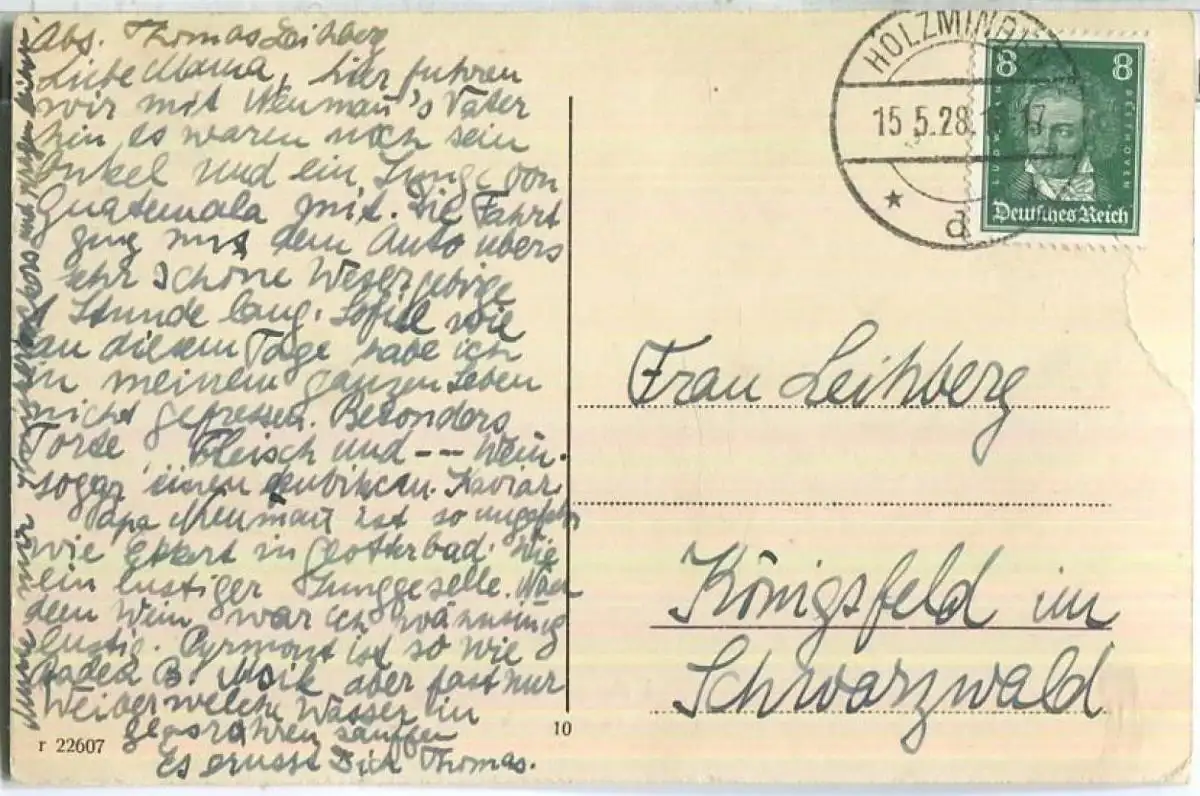 Abs. Thomas Leihberg
Liebe Mama, hier fuhren
wir mit Neumann's Vater
hin es waren noch sein
Onkel und ein Junge von
Guatemala mit. Die Fahrt
ging mit dem Auto übers
sehr schöne Wesergebirge
Stunde lang. Soviel wie
an diesem Tage habe ich
in meinem ganzen Leben
nicht gefressen. Besonders
Torte, Fleisch und -- Wein.
sogar einen Kaviar.
Papa Neumann ist so ungefähr
wie Ekkert in Glotterbad. Wie
ein lustiger Junggeselle. Nach
dem Wein war ich wahnsinnig
lustig. Pyrmont ist so wie
Baden B. aber fast nur
Weiber welche Wasser in
sauffen
Es grüsst Dich Thomas.
r 22607
10
HOLZMINDEN
15.5.28.
* d
8 8
LUDWIG VAN BEETHOVEN
Deutsches Reich
Frau Leihberg
Königsfeld im
Schwarzwald